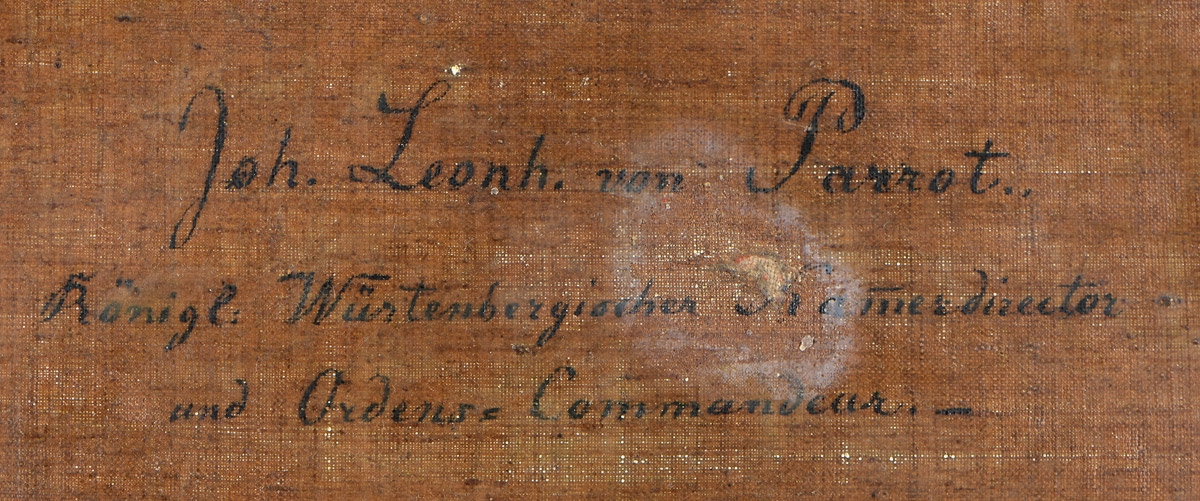 Joh. Leonh. von Parrot.,
Königl: Würtenbergischer Kam̅erdirector -
und Ordens= Commandeur. —